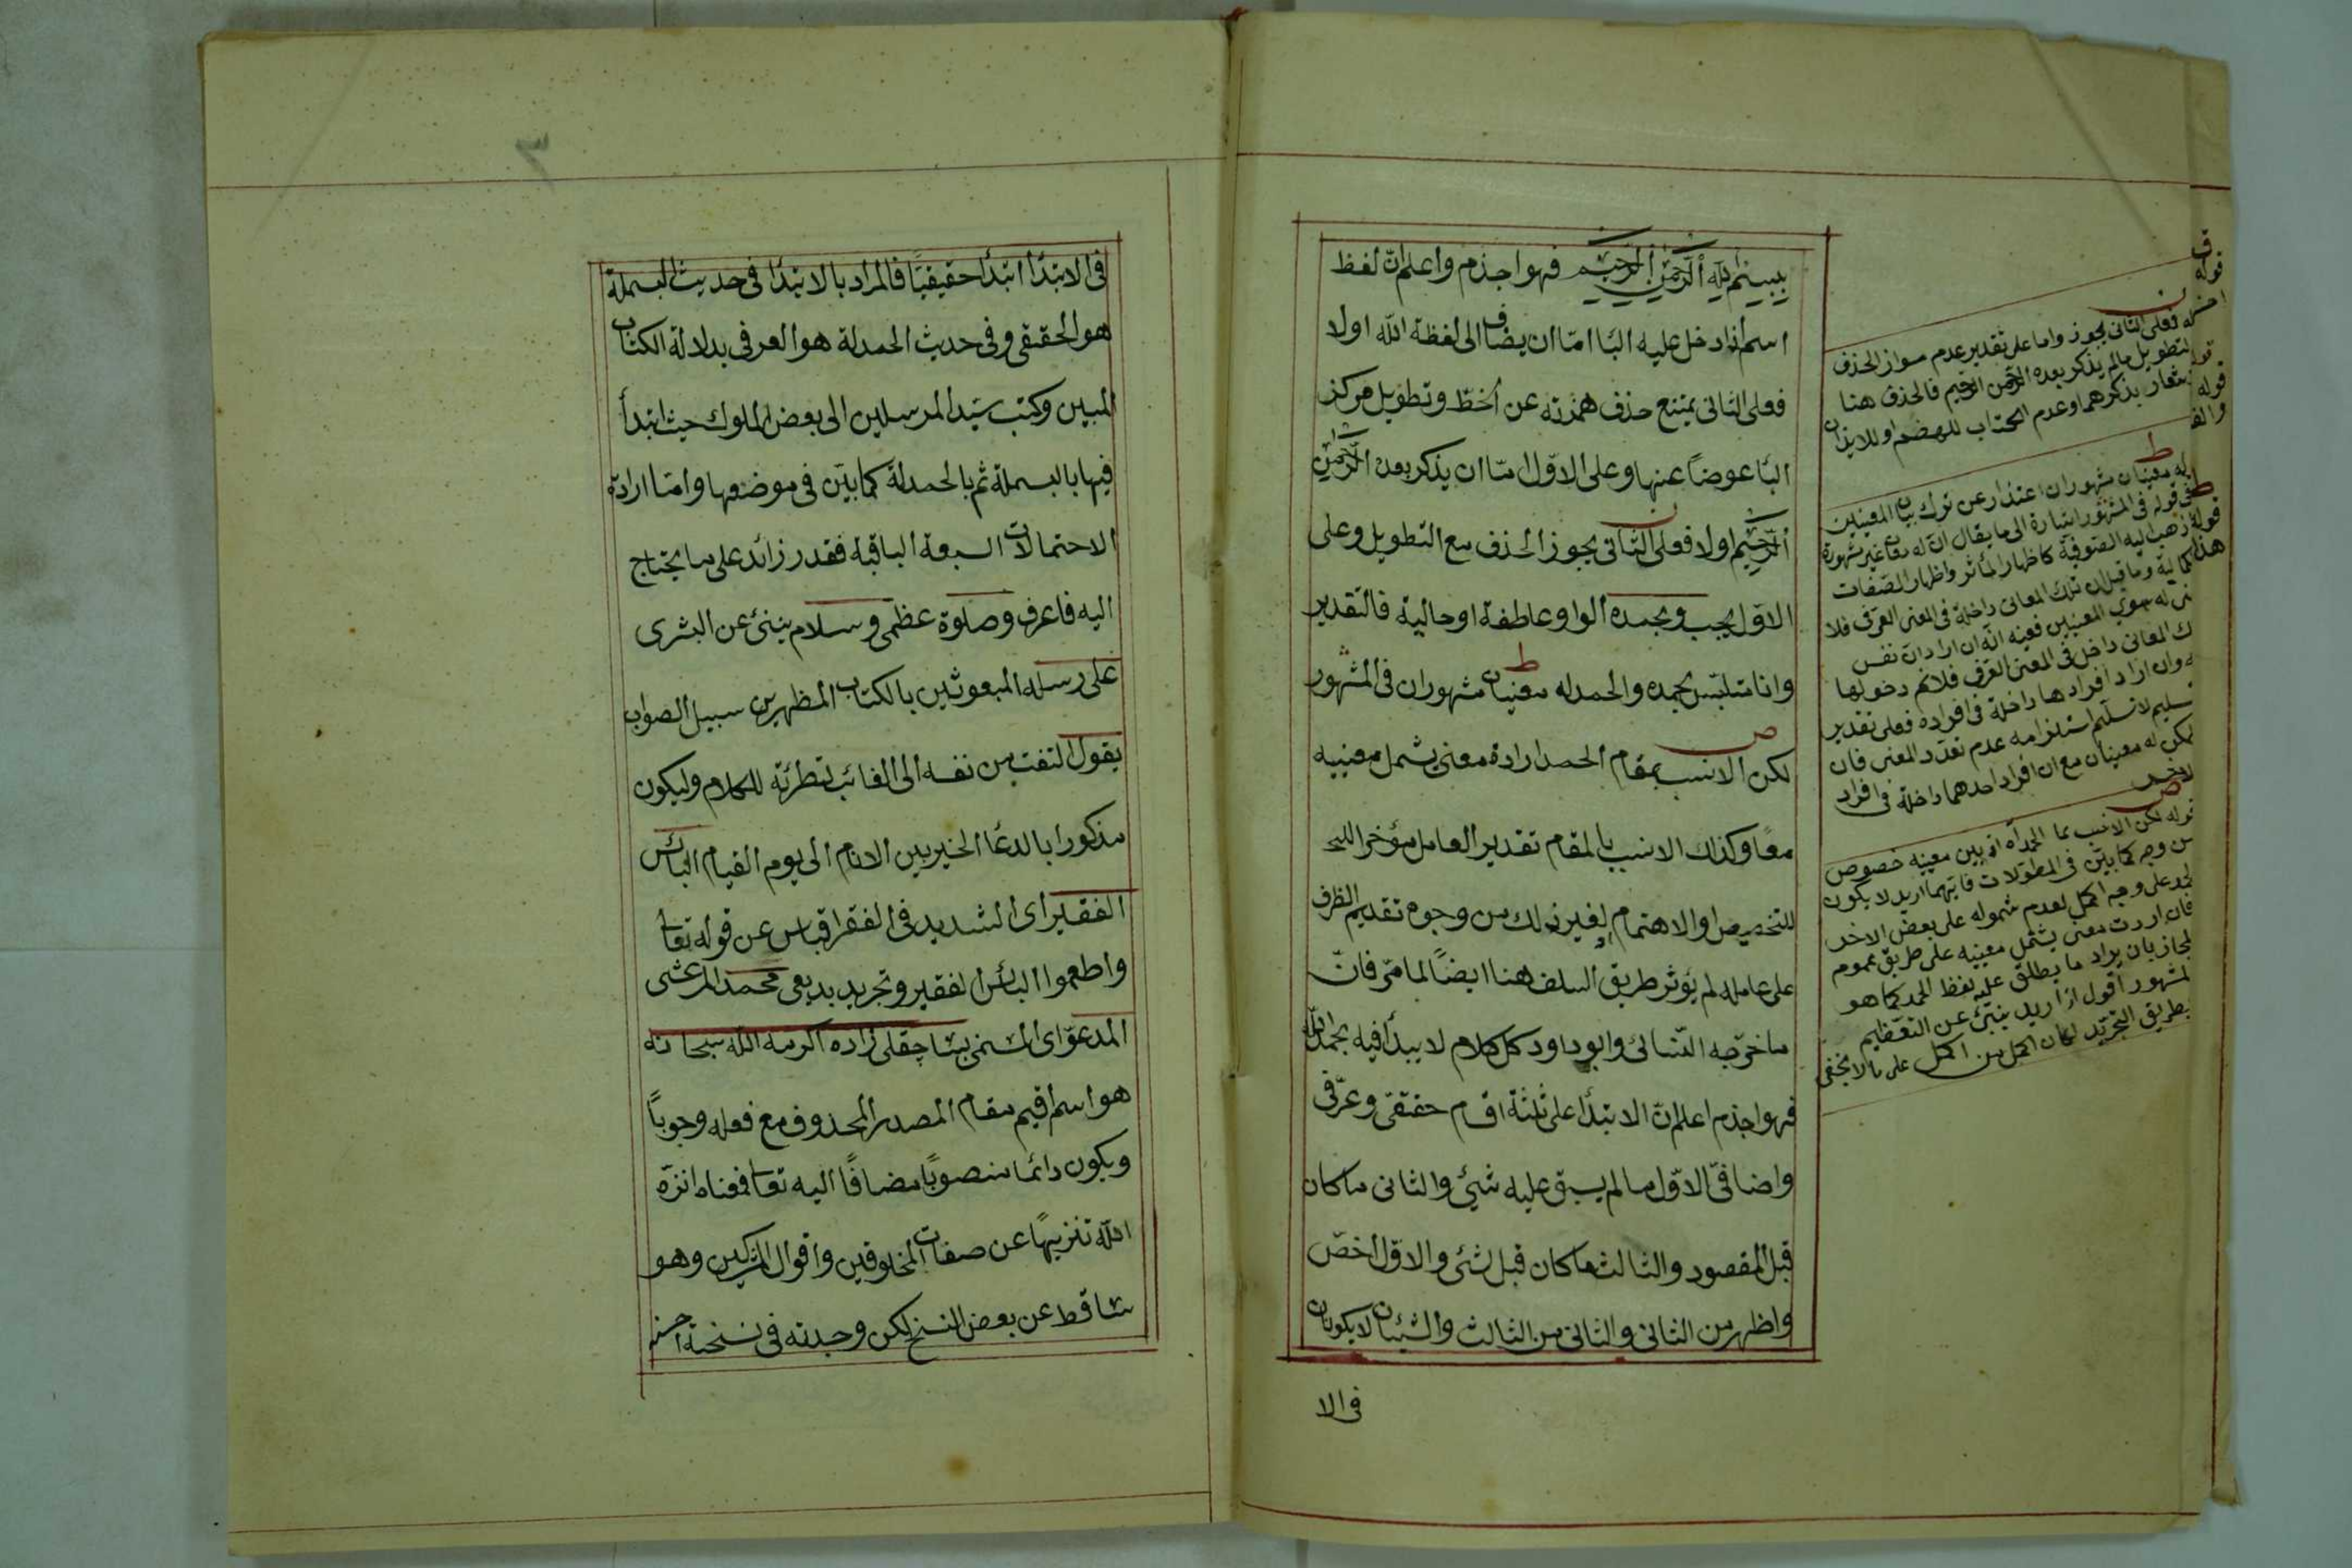 ببسم الله الرحمن الرحيم فهو اجذم واعلم ان لفظ
اسم اذا دخل عليه البا امّا ان يضاف الى لفظة الله اولا
فعلى الثانى يمتنع حذف همزته عن الخطّ وتطويل مركز
البا عوضاً عنها وعلى الاوّل امّا ان يذكر بعده الرّحمن
الرّحيم اولا فعلى الثّانى يجوز الحذف مع التطويل وعلى
الاوّل يجب وبحمده الواو عاطفة او حالية فالتقدير
وانا متلبّس بحمده والحمد له معنيان مشهوران فى المشهور
لكن الانسب بمقام الحمد ارادة معنى يشمل معنييه
معًا وكذلك الانسب بالمقام تقدير العامل مؤخرا
للتخصيص والاهتمام لغير ذلك من وجوه تقديم الظرف
على عامله لم يؤثر طريق السلف هنا ايضًا لما مرّ فانّ
ما خرّجه النّسائى وابو داود كل كلام لا يبدأ فيه بحمد الله
فهو اجذم اعلم انّ الابتدأ على ثلثة اقسام حقيقى وعرّفى
واضافىّ الاوّل ما لم يسبق عليه شئ والثانى ما كان
قبل المقصود والثالث ما كان قبل شئ والاوّل اخصّ
واظهر من الثانى والثانى من الثالث والشيئان لا يكونان
فى الا
له فعلى الثانى يجوز واما على تقدير عدم جواز الحذف
لتطويل مالم يذكر بعده الرّحمن الرحيم فالحذف هنا
بذكرهما وعدم
له معنيان مشهوران اعتذار عن ترك بيان المعنيين
قوله فى المشهور اشارة الى ما يقال انّ له معان غير مشهورة
ذهب اليه الصّوفية كاظهار المأثر واظهار الصّفات
وما قيل ان تلك المعانى داخلة فى المعنى العرّفى فلا
له سوى المعنيين ففيه انّه ان اراد انّ نفس
المعانى داخل فى المعنى العرفى فلانم دخولها
وان اراد افرادها داخلة فى افراده فعلى تقدير
تسليم لا نسلّم استلزامه عدم تعدّد المعنى فان
له معنيان مع ان افراد احدهما داخلة فى افراد
الاخر
قوله لكن الانسب بما الحمد اه اذ بين معنييه خصوص
من وجه كما بيّن فى المطوّلات فايّهما اريد لا يكون
على وجه اكمل لعدم شموله على بعض الاخر
فان اردت معنى يشمل معنييه على طريق عموم
المجاز بان يراد ما يطلق عليه لفظ الحمد كما هو
المشهور اقول اذا اريد ينبئ عن التعظيم
بطريق التجريد لكان اكمل من اكمل على ما لا يخفى
فى الابتدأ ابتدأ حقيقيّا فالمراد بالابتدأ فى حديث البسملة
هو الحقيقى وفى حديث الحمدلة هو العرفى بدلالة الكتاب
المبين وكتب سيّد المرسلين الى بعض الملوك حيث ابتدأ
فيها بالبسملة ثم بالحمدلة كما بيّن فى موضعها وامّا ارادة
الاحتمالات السبعة الباقية فقدر زائد على ما يحتاج
اليه فاعرف وصلوة عظمى وسلام ينبئ عن البشرى
على رسله المبعوثين بالكتاب المظهرين سبيل الصواب
يقول التفت من نفسه الى الغائب لتطرئة للكلام وليكون
مذكورا بالدعا الخير بين الانام الى يوم القيام البائس
الفقير اى الشديد فى الفقر اقتباس عن قوله تعا
واطعموا البائس الفقير وتجريد بديعى محمد المرعشى
المدعوّ اى المسمّى بساچقلى زاده اكرمه الله سبحانه
هو اسم اقيم مقام المصدر المحذوف مع فعله وجوباً
ويكون دائما منصوبًا مضافًا اليه تعا فمعناه انزّه
الله تنزيهًا عن صفات المخلوقين واقوال المشركين وهو
ساقط عن بعض النسخ لكن وجدته فى نسخة